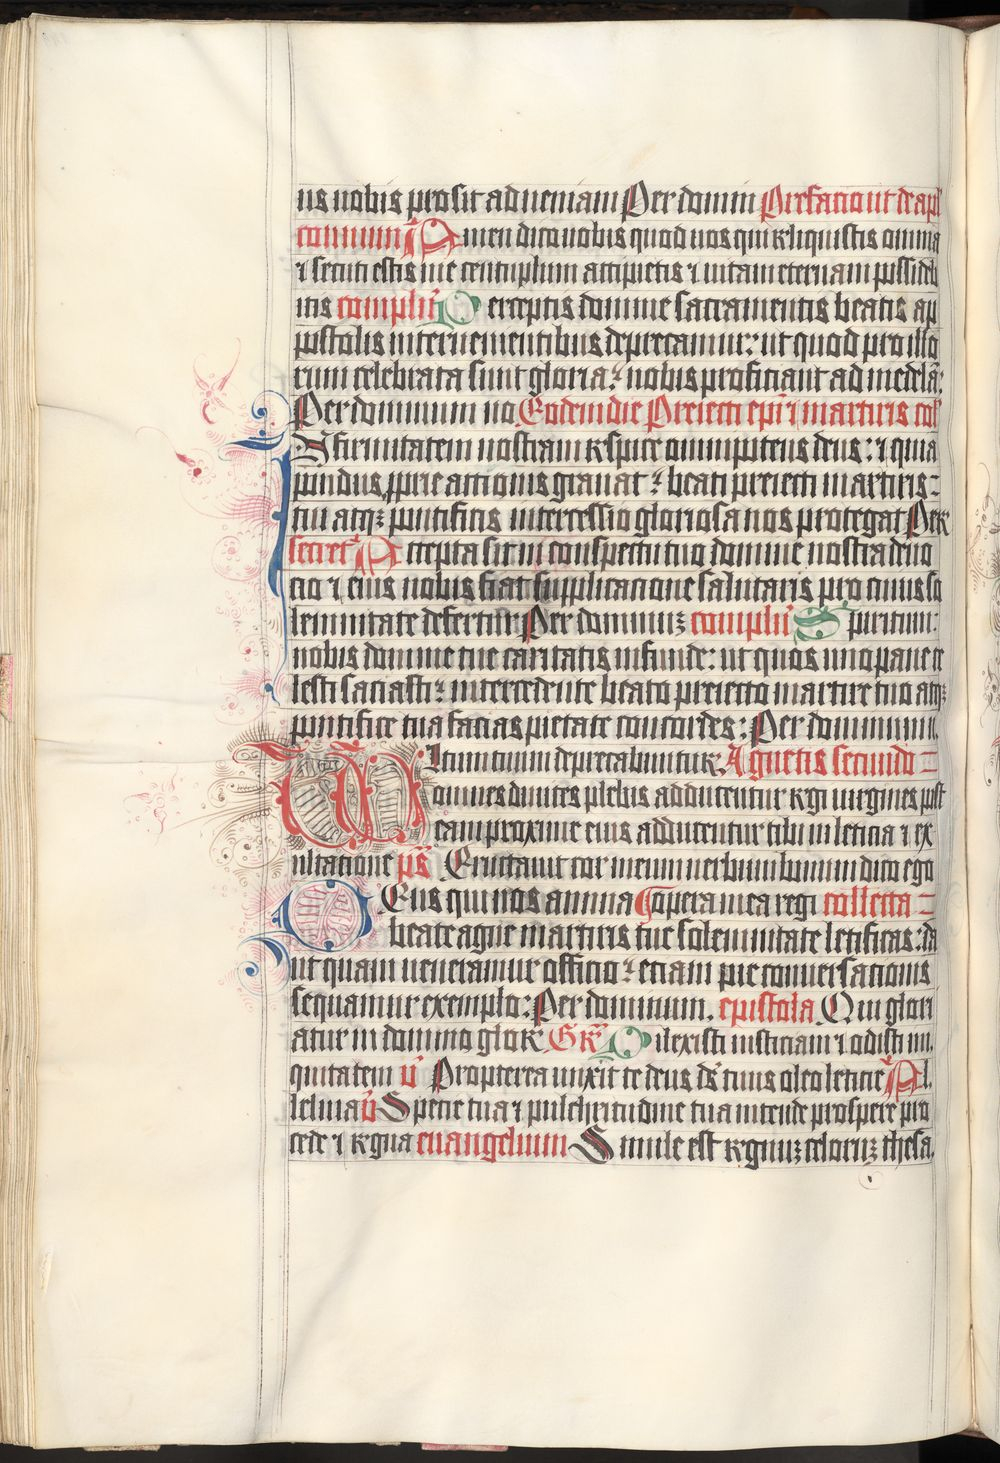 us nobis prosit ad ueniam Per domin Prefacio ut de apl
comuni Amen dico uobis quod uos qui reliquistis omnia
⁊ secuti estis me centuplum accipietis ⁊ uitam eternam possideb
itis complēn Perceptis domine sacramentis beatis ap
postolis interuenientibus deprecamur: ut quod pro illo
rum celebrata sunt gloria: nobis proficiant ad medelā:
Per dominum no Eodem die Preiecti epī ⁊ martiris coll
Infirmitatem nostram respice omnipotens deus: ⁊ quia
pondus pprie actionis grauat: beati preiecti martiris:
tui atqꝫ pontificis intercessio gloriosa nos protegat Per
secret Accepta sit in conspectu tuo domine nostra deuo
cio ⁊ eius nobis fiat supplicatione salutaris pro cuius so
lennitate defertur: Per dominuꝫ complēn Spiritum:
nobis domine tue caritatis infunde: ut quos uno pane ce
lesti saciasti: intercedente beato preiecto martire tuo atqꝫ
pontifice tua facias pietate concordes: Per dominum.
Vltum tuum deprecabuntur Agnetis secundo
omnes diuites plebis adducentur regi uirgines post
eam proxime eius adducentur tibi in leticia ⁊ ex
ultacione ps̄ Eructauit cor meum uerbum bonum dico ego
Deus qui nos annua opera mea regi collecta
beate agne martiris tue solennitate letificas: da
ut quam ueneramur officio: etiam pie conuersacionis
sequamur exemplo: Per dominum. epistola Qui glori
atur in domino glor Gr Dilexisti iusticiam ⁊ odisti ini
quitatem v̄ Propterea unxit te deus ds̄ tuus oleo leticie Al
leluia v̄ Specie tua ⁊ pulchritudine tua intende prospere pro
cede ⁊ regna euangelium Simile est regnuꝫ celoruꝫ thesa